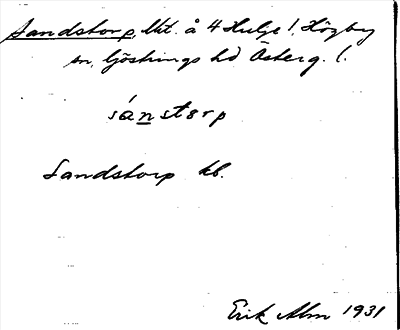 Sandstorp, lht. å 4 Hulje l, Högby
sn, Göstrings hd Österg. l.
sánstɛrp
Sandstorp kb.
Erik Alm 1931